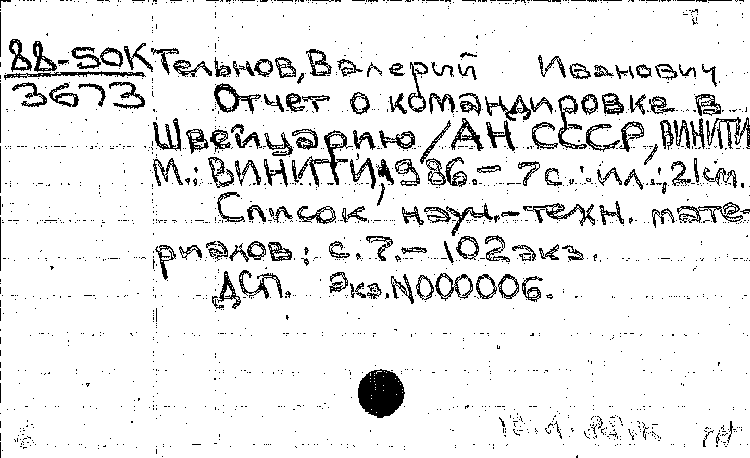 88-50К Тельнов, Валерий Иванович
3673 Отчет о командировке в
Швейцарию / АН СССР, ВИНИТИ
М.: ВИНИТИ, 1986. - 7с.: ил.; 21см.
Список науч.-техн. мате-
риалов: с. 7. - 102 экз.
ДСП. Экз. N000006.